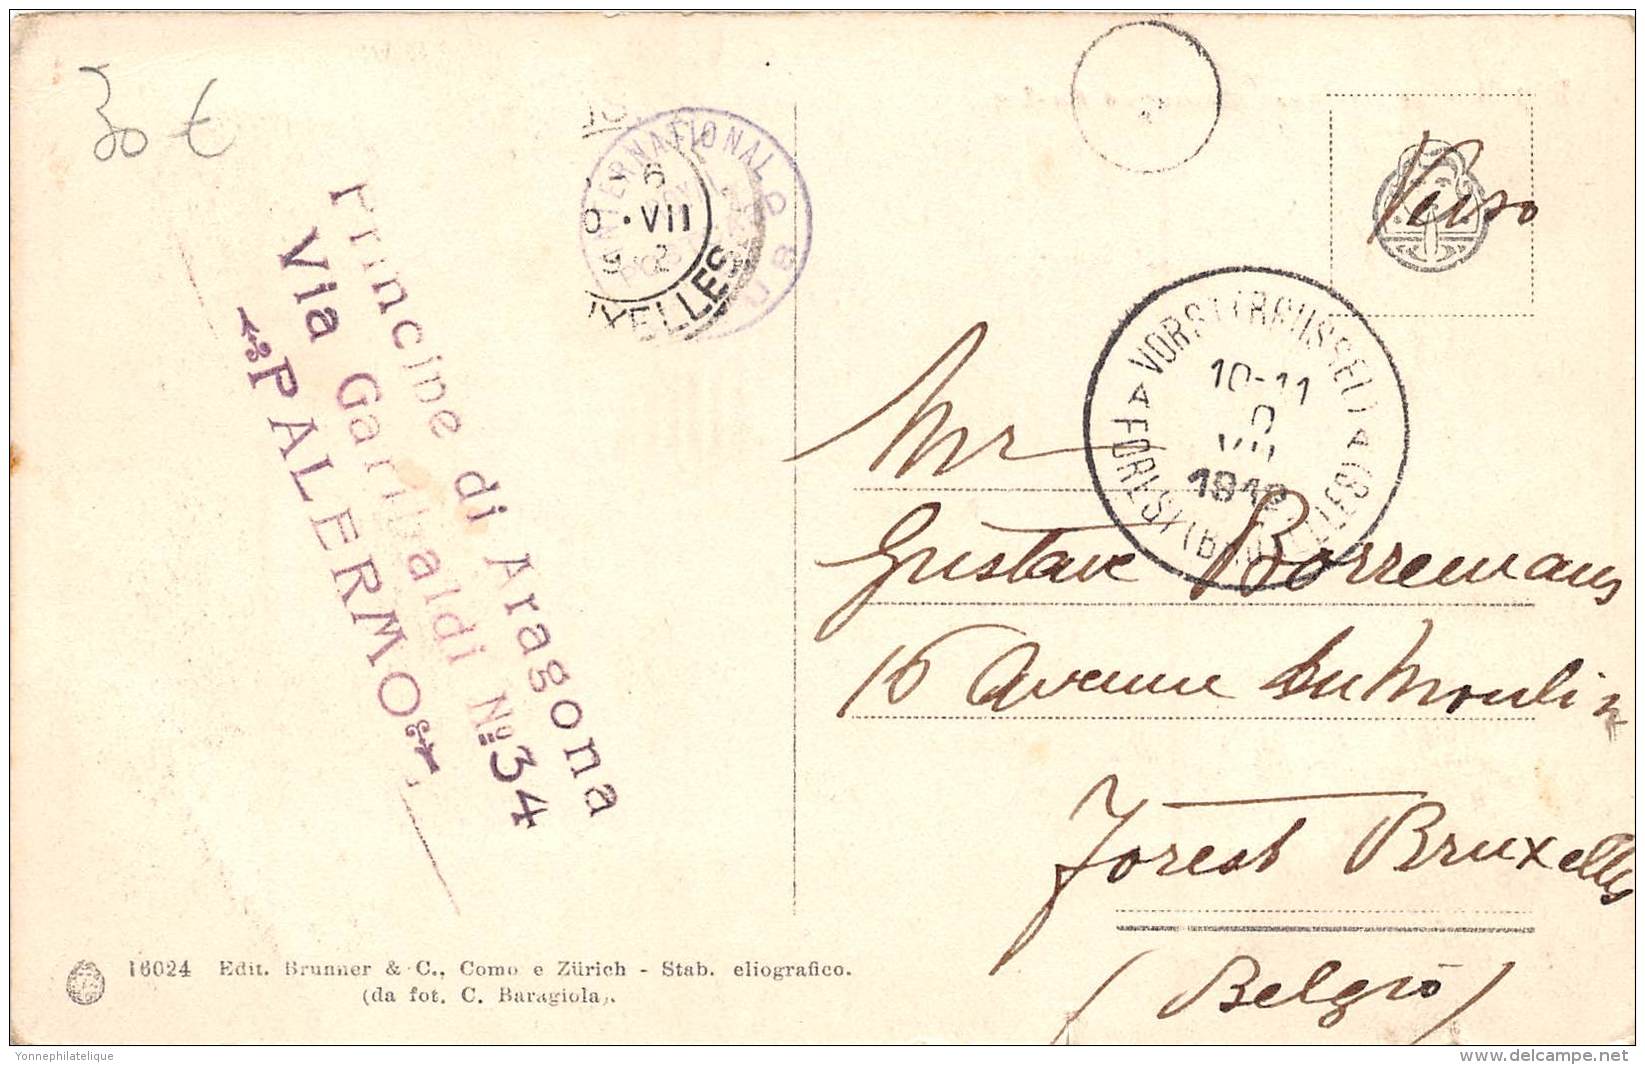 30 €
INTERNATIONAL
6
VII
Verso
Principe di Aragona
Via Garibaldi Nº 34
PALERMO
VORST (BRUSSEL)
10-11
VII
FOREST (BRUXELLES)
Mr
Gustave Borremans
16 Avenue du Moulin
Forest Bruxelles
(Belgio)
16024 Edit. Brunner & C., Como e Zürich - Stab. eliografico.
(da fot. C. Baragiola).
Yonnephilatelique
www.delcampe.net